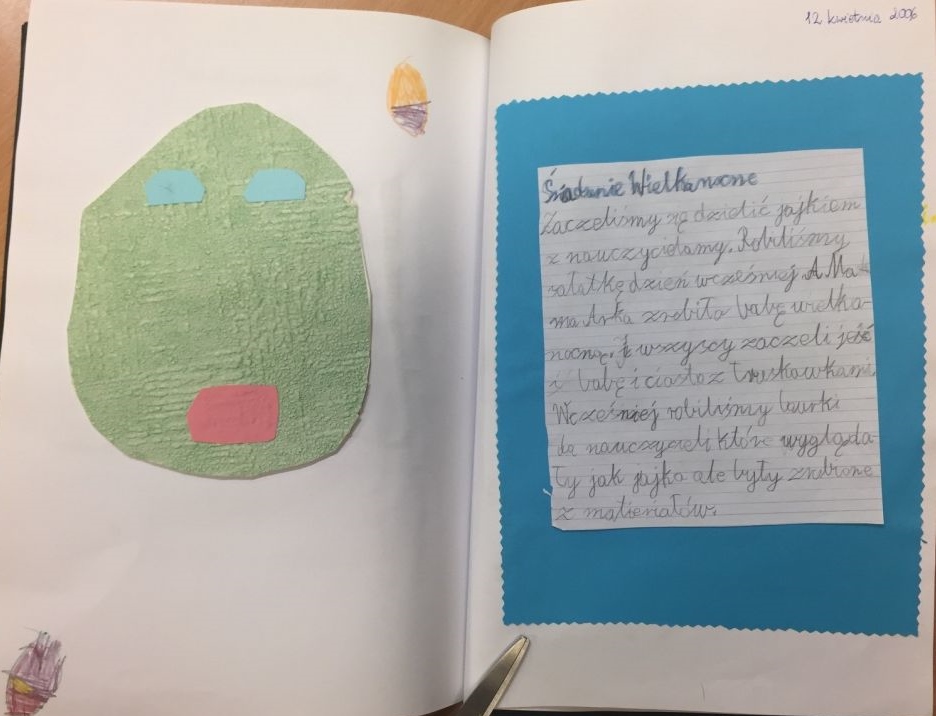 12 kwietnia 2006
Śniadanie Wielkanocne
Zaczeliśmy się dzielić jajkiem
z nauczycielamy. Robiliśmy
sałatkę dzień wcześniej. A Ma
ma Arka zrobiła babę wielka-
nocną. I wszyscy zaczeli jeść
babę i ciasto z truskawkami.
Wcześniej robiliśmy laurki
dla nauczycieli które wygląda-
ły jak jajka ale były zrobione
z materiałów.